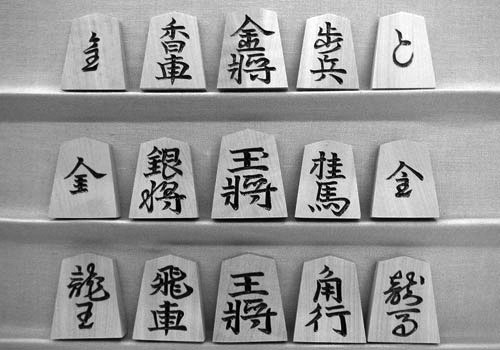 全 香車 金將 歩兵 と
金 銀将 玉将 桂馬 全
龍王 飛車 王将 角行 龍馬